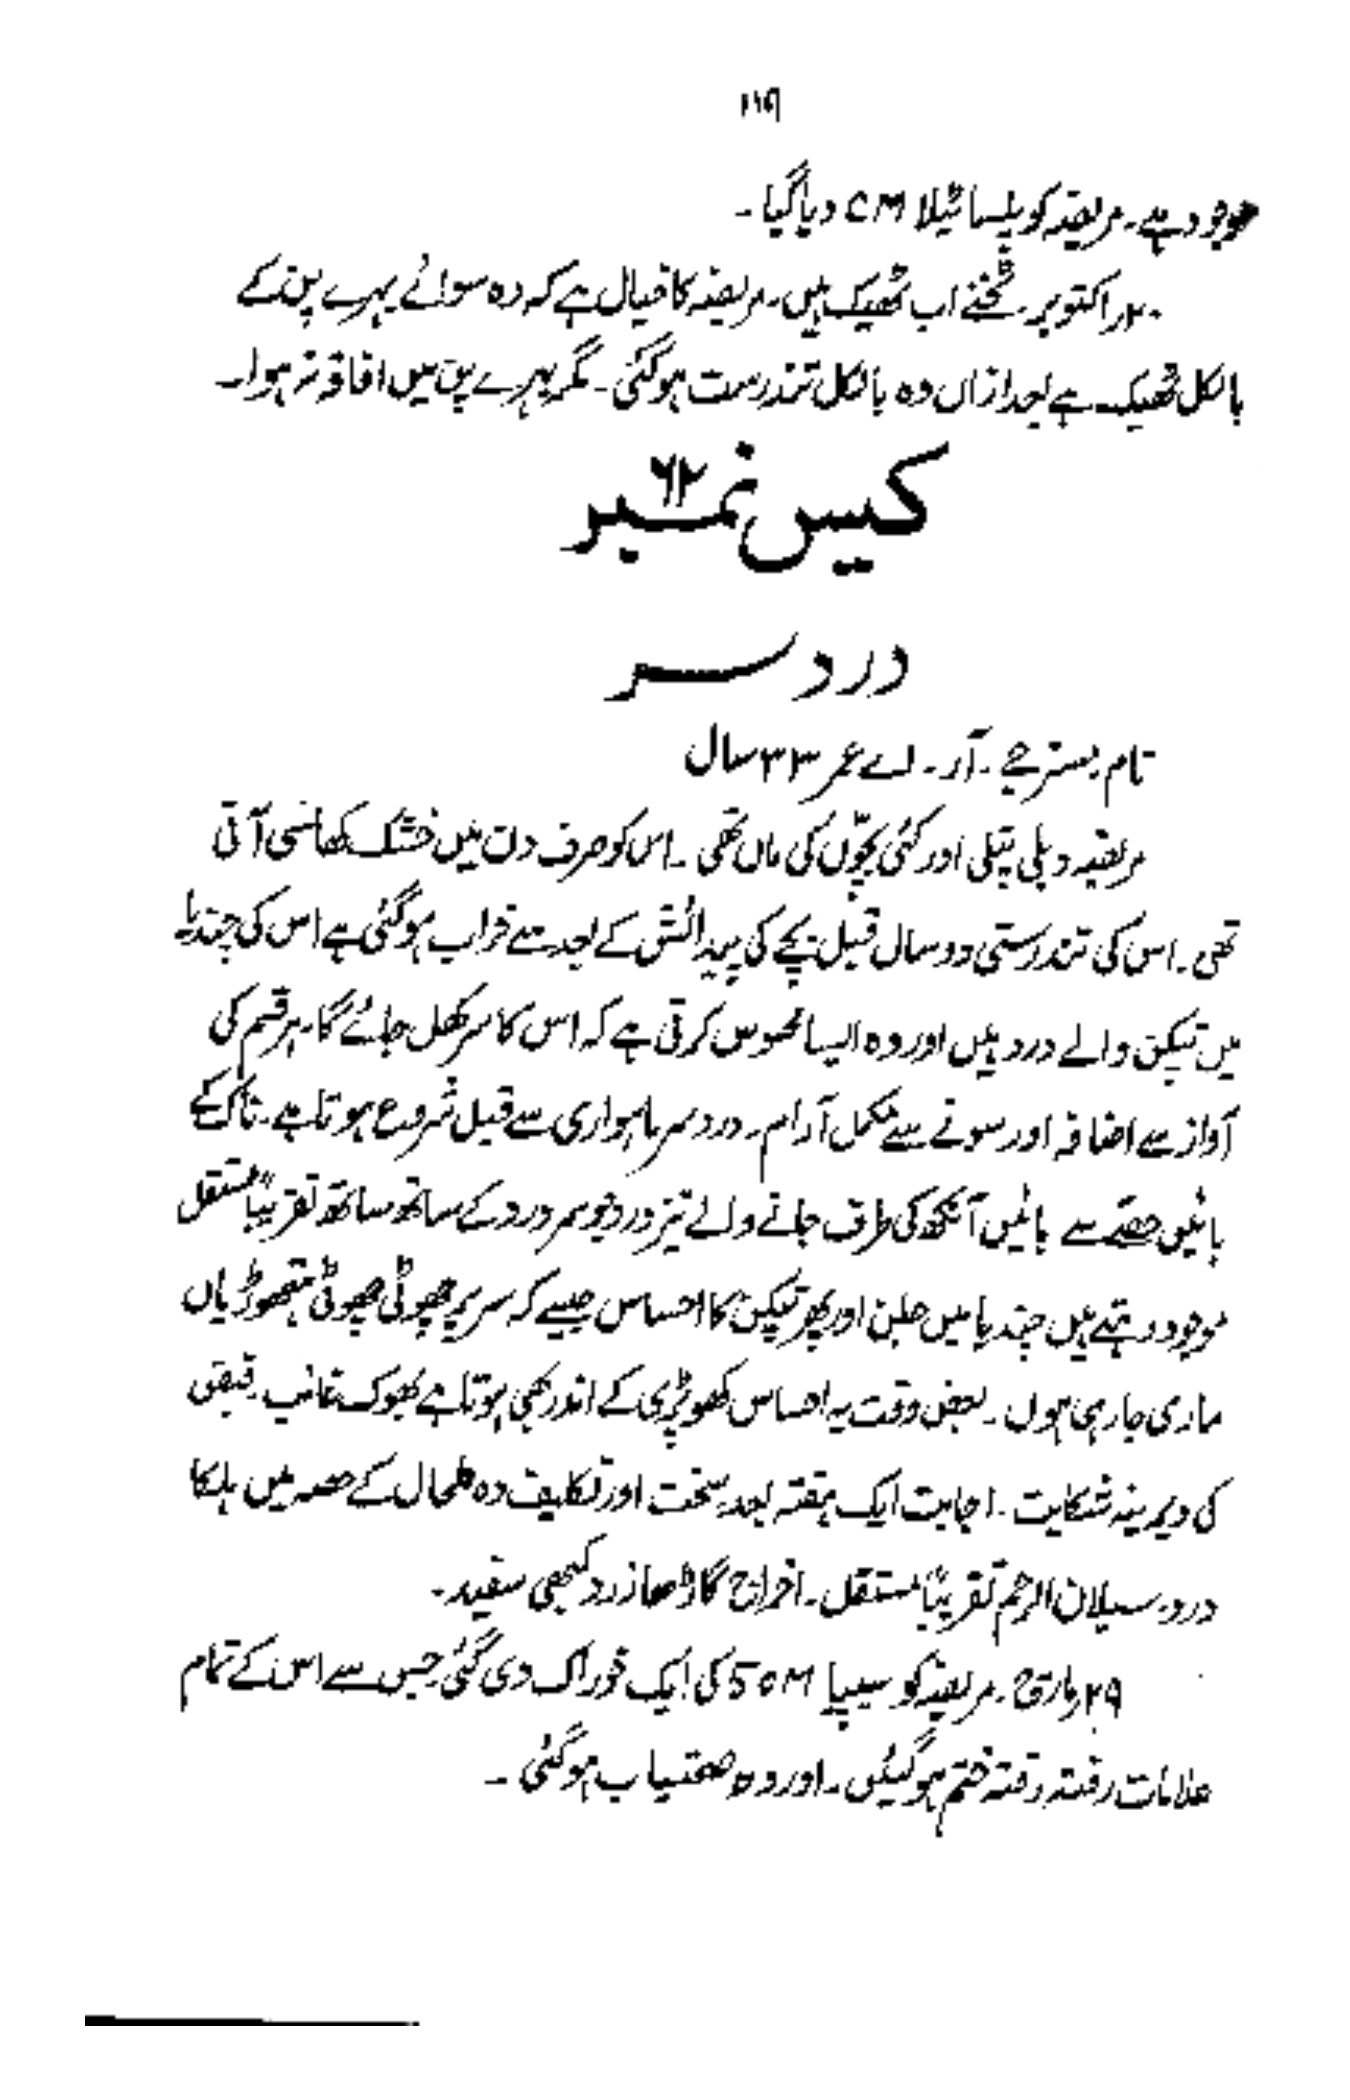 ۱۱۹
موجود ہے۔ مریضہ کو پلساٹیلا CM دیا گیا۔
۲۰ر اکتوبر۔ ٹخنے اب ٹھیک ہیں۔ مریضہ کا خیال ہے کہ وہ سوائے بہرے پن کے
بالکل ٹھیک ہے بعد ازاں وہ بالکل تندرست ہوگئی۔ مگر بہرے پن میں افاقہ نہ ہوا۔
کیس نمبر ۶۲
درد سر
نام مسز جے۔ آر۔ اے عمر ۳۳ سال
مریضہ دبلی پتلی اور کئی بچّوں کی ماں تھی۔ اس کو صرف دن میں خشک کھانسی آتی
تھی۔ اس کی تندرستی دو سال قبل بچے کی پیدائش کے بعد سے خراب ہوگئی ہے اس کی چندیا
میں تپکن والے درد ہیں اور وہ ایسا محسوس کرتی ہے کہ اس کا سر کھل جائے گا۔ ہر قسم کی
آواز سے اضافہ اور سونے سے مکمل آرام۔ درد سر ماہواری سے قبل شروع ہوتا ہے۔ ناک کے
بائیں حصّے سے بائیں آنکھ کی طرف جانے والے تیز درد جو سر درد کے ساتھ ساتھ تقریباً مستقل
موجود رہتے ہیں چندیا میں جلن اور پھر تپکن کا احساس جیسے کہ سر پر چھوٹی چھوٹی ہتھوڑیاں
ماری جارہی ہوں۔ بعض وقت یہ احساس کھوپڑی کے اندر بھی ہوتا ہے بھوک غائب۔ قبض
کی دیرینہ شکایت۔ اجابت ایک ہفتہ بعد۔ سخت اور تکلیف دہ طحال کے حصہ میں ہلکا
درد۔ سیلان الرحم تقریباً مستقل۔ اخراج گاڑھا زرد کبھی سفید۔
۲۹ر مارچ۔ مریضہ کو سیپیا 50M کی ایک خوراک دی گئی جس سے اس کے تمام
علامات رفتہ رفتہ ختم ہوگئیں۔ اور وہ صحتیاب ہوگئی۔